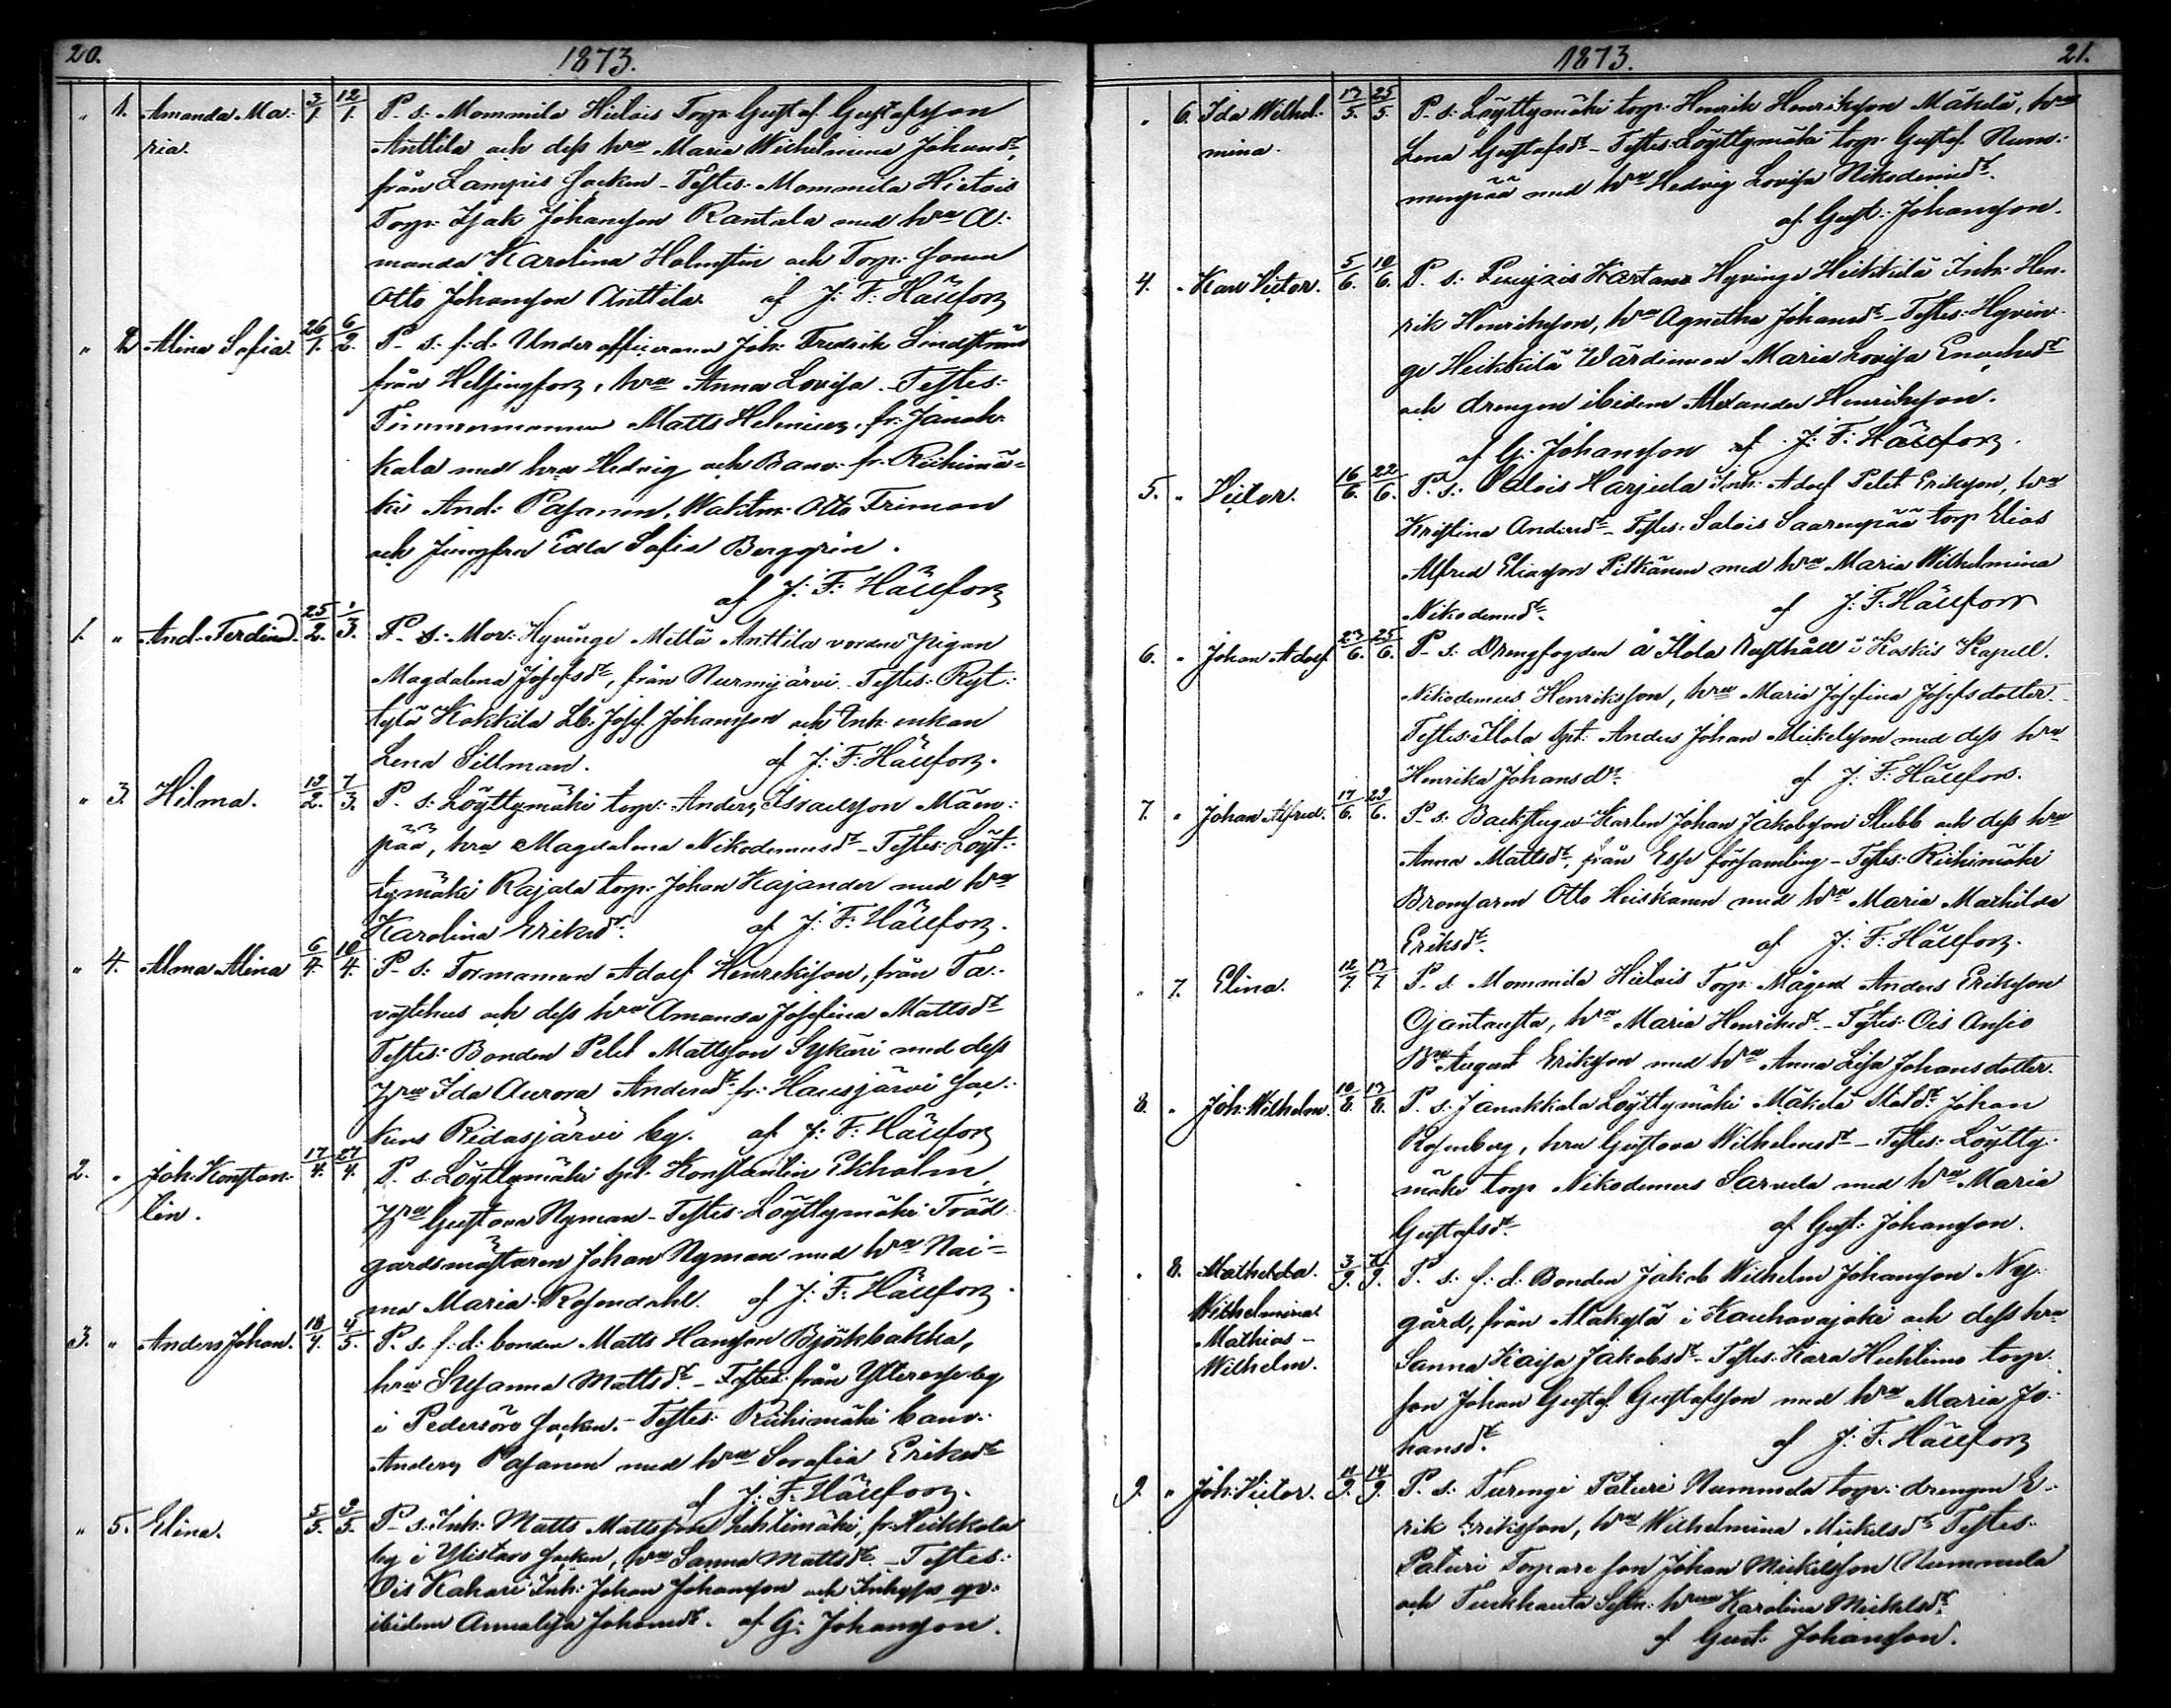 20. 1873.
„ 1. Amanda Ma- 3/1. 12/1. P. s: Mommila Hietois Torp: Gustaf Gustafsson
ria. Anttila och dess hru Maria Wilhelmina Johansdr,
från Lampis socken - Testes: Mommila Hietois
Torp: Isak Johansson Rantala med hru A:
manda Karolina Holmsten och Torp: sonen
Otto Johansson Anttila. af J: F: Hällfors
„ 2. Alina Sofia. 26/1. 6/2. P. s: f: d: Underofficeraren Joh: Fredrik Lindström
från Helsingfors, hru Anna Lovisa - Testes:
Timmermannen Matts Helenius, fr: Janak-
kala med hru Hedvig och Banv: fr: Riihimä-
ki And: Pasanen, Waktm: Otto Friman
och Jungfru Edla Sofia Berggrén.
af J: F: Hällfors
1. „ And: Ferdinand. 25/2. 1/3. P. s: Mor: Hyvinge Mellä Anttila vordne pigan
Magdalena Josefsdr, från Nurmijärvi - Testes: Ryt-
tylä Kokkila Lb: Josef Johansson och Inh: enkan
Lena Sillman. af J: F: Hällfors.
„ 3. Hilma. 12/2. 7/3. P. s: Löyttymäki torp: Anders Israelsson Mäen-
pää, hru Magdalena Nikodemusdr - Testes: Löyt-
tymäki Rajala torp: Johan Kajander med hru
Karolina Eriksdr. af J: F: Hällfors.
„ 4. Alma Alina 6/4. 10/4. P. s: Formannen Adolf Henriksson, från Ta-
vastehus och dess hru Amanda Josefina Mattsdr
Testes: Bonden Petet Mattsson Sykäri med dess
hru Ida Aurora Andersdr fr: Hausjärvi soc-
kens Ridasjärvi by. af J: F: Hällfors
2. „ Joh: Konstan- 17/4. 27/4. P. s: Löyttymäki Konstantin Ekholm,
tin. hru Gustava Nyman - Testes: Löyttymäki Träd-
gårdsmästaren Johan Nyman med hru Nai-
ma Maria Rosendahl. af J: F: Hällfors.
3. „ Anders Johan. 18/4. 4/5. P. s: f: d: bonden Matts Hansson Björkbakka,
hru Susanna Mattsdr. - Testes: från Ytteresse by
i Pedersöre socken. - Testes: Riihimäki banv:
Anders Pasanen med hru Serafia Eriksdr
af J: F: Hällfors.
„ 5. Elina. 5/5. 9/5. P. s: Inh: Matts Mattsson Lehtimäki, fr: Heikkola
by i Ylistaro socken, hru Sanna Mattsdr. - Testes:
Ois Kahari Inh: Johan Johansson och Inhyses qv:
ibidem Annalisa Johansdr. af G: Johansson.
1873. 21.
„ 6. Ida Wilhel- 13/5. 25/5. P. s: Löyttymäki torp: Henrik Henriksson Mäkelä, hru
mina. Lena Gustafsdr - Testes: Löyttymäki torp: Gustaf Num-
menpää med hru Hedvig Lovisa Nikodemidr.
af Gust: Johansson.
4. „ Karl Victor. 5/6. 10/6. P. s: Hyvinge Heikkilä Inh: Hen-
rik Henriksson, hru Agnetha Johansdr - Testes: Hyvin-
ge Heikkilä Wärdinnan Maria Lovisa Enochsdr
och drengen ibidem Alexander Henriksson.
af G: Johansson af J: F: Hällfors.
5. „ Victor. 16/6. 22/6. P. s: Salois Harjula Inh: Adolf Petet Eriksson, hru
Kristina Andersdr - Testes: Salois Saarenpää torp Elias
Alfred Eliasson Pitkänen med hru Maria Wilhelmina
Nikodemusdr. af J: F: Hällfors
6. „ Johan Adolf 23/6. 25/6. P. s: Drengfogden å Ilola Rusthåll i Koskis Kapell.
Nikodemus Henriksson, hru Maria Josefina Josefsdotter -
Testes: Ilola Anders Johan Mickelsson med dess hru
Henrika Johansdr. af J: F: Hällfors.
7. „ Johan Alfred. 17/6. 29/6. P. s: Backstugu-Karlen Johan Jakobsson Slubb och dess hru
Anna Mattsdr, från Esse församling - Testes: Riihimäki
Bromsaren Otto Heiskanen med hru Maria Mathilda
Eriksdr. af J: F: Hällfors.
„ 7. Elina. 12/7 13/7 P. s: Mommila Hietois Torp: Mågen Anders Eriksson
Ojantausta, hru Maria Henriksdr - Testes: Ois Ansio
August Eriksson med hru Anna Lisa Johansdotter.
8. „ Joh: Wilhelm. 10/8. 17/8. P. s: Janakkala Löyttymäki Mäkelä Johan
Rosenberg, hru Gustava Wilhelmsdr - Testes: Löytty-
mäki torp Nikodemus Sarvela med hru Maria
Gustafsdr. af Gust: Johansson.
„ 8. Mathilda 3/9. 7/9. P. s: f: d: Bonden Jakob Wilhelm Johansson Ny-
Wilhelmina gård, från Mäkylä i Kauhavajoki och dess hru
Mathias - Sanna Kaisa Jakobsdr - Testes: Kara Huhtimo torp:
Wilhelm. son Johan Gustaf Gustafsson med hru Maria Jo-
hansdr. af J: F: Hällfors
9. „ Joh: Victor. 11/9. 14/9. P. s: Turengi Paturi Nummela torp: drengen E-
rik Eriksson, hru Wilhelmina Mickelsdr Testes:
Paturi Torpare son Johan Mickelsson Nummela
och Turkhauta hru Karolina Mickelsdr.
af Gust: Johansson.